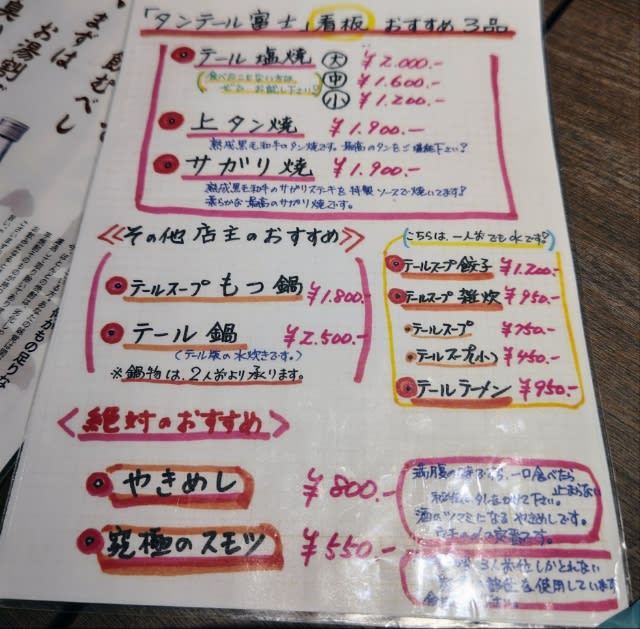 まずは
飲むべし
お湯割
「タンテール富士」看板 おすすめ3品
テール塩焼 大 ¥2.000-
(食べたことない方は 中 ¥1.600-
ぜひ お試し下さい!) 小 ¥1.200-
上タン焼 ¥1.900-
熟成黒毛和牛のタン焼です。最高のタンをご堪能下さい!
サガリ焼 ¥1.900-
熟成黒毛和牛のサガリステーキを特製ソースで焼いてます!
柔らかな最高のサガリ焼です。
≪その他店主のおすすめ≫
テールスープもつ鍋 ¥1.800-
テール鍋 ¥2.500-
(テール塊の水炊きです。)
※鍋物は、2人前より承ります。
(こちらは、一人前でもOKです!)
テールスープ餃子 ¥1.200-
テールスープ雑炊 ¥950-
テールスープ ¥750-
テールスープ(小) ¥450-
テールラーメン ¥950-
<絶対のおすすめ>
やきめし ¥800-
究極のスモツ ¥550-
一口食べたら
止まらない
酒のツマミになるやきめしです。
3人前位しかとれない
を使用しています